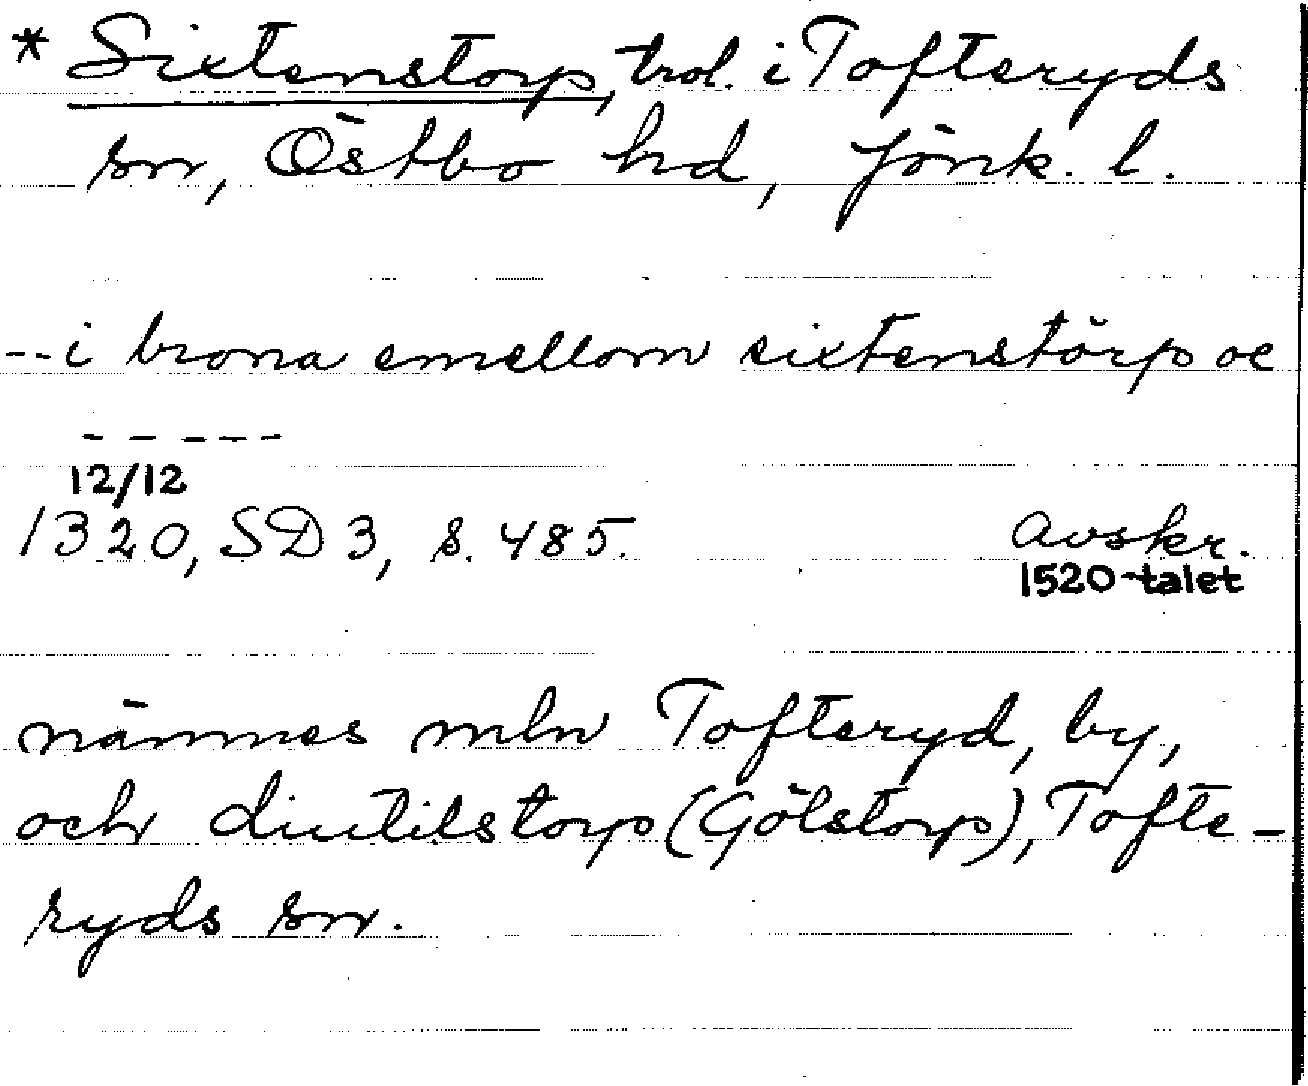 * Sixtenstorp, trol. i Tofteryds
sn, Östbo hd, Jönk. l.
--i brona emellom sixtenstörp oc
- - - - -
12/12
1320, SD 3, s. 485. Avskr.
1520-talet
nämnes mln Tofteryd, by,
och diutilstorp (Gölstorp), Tofte-
ryds sn.